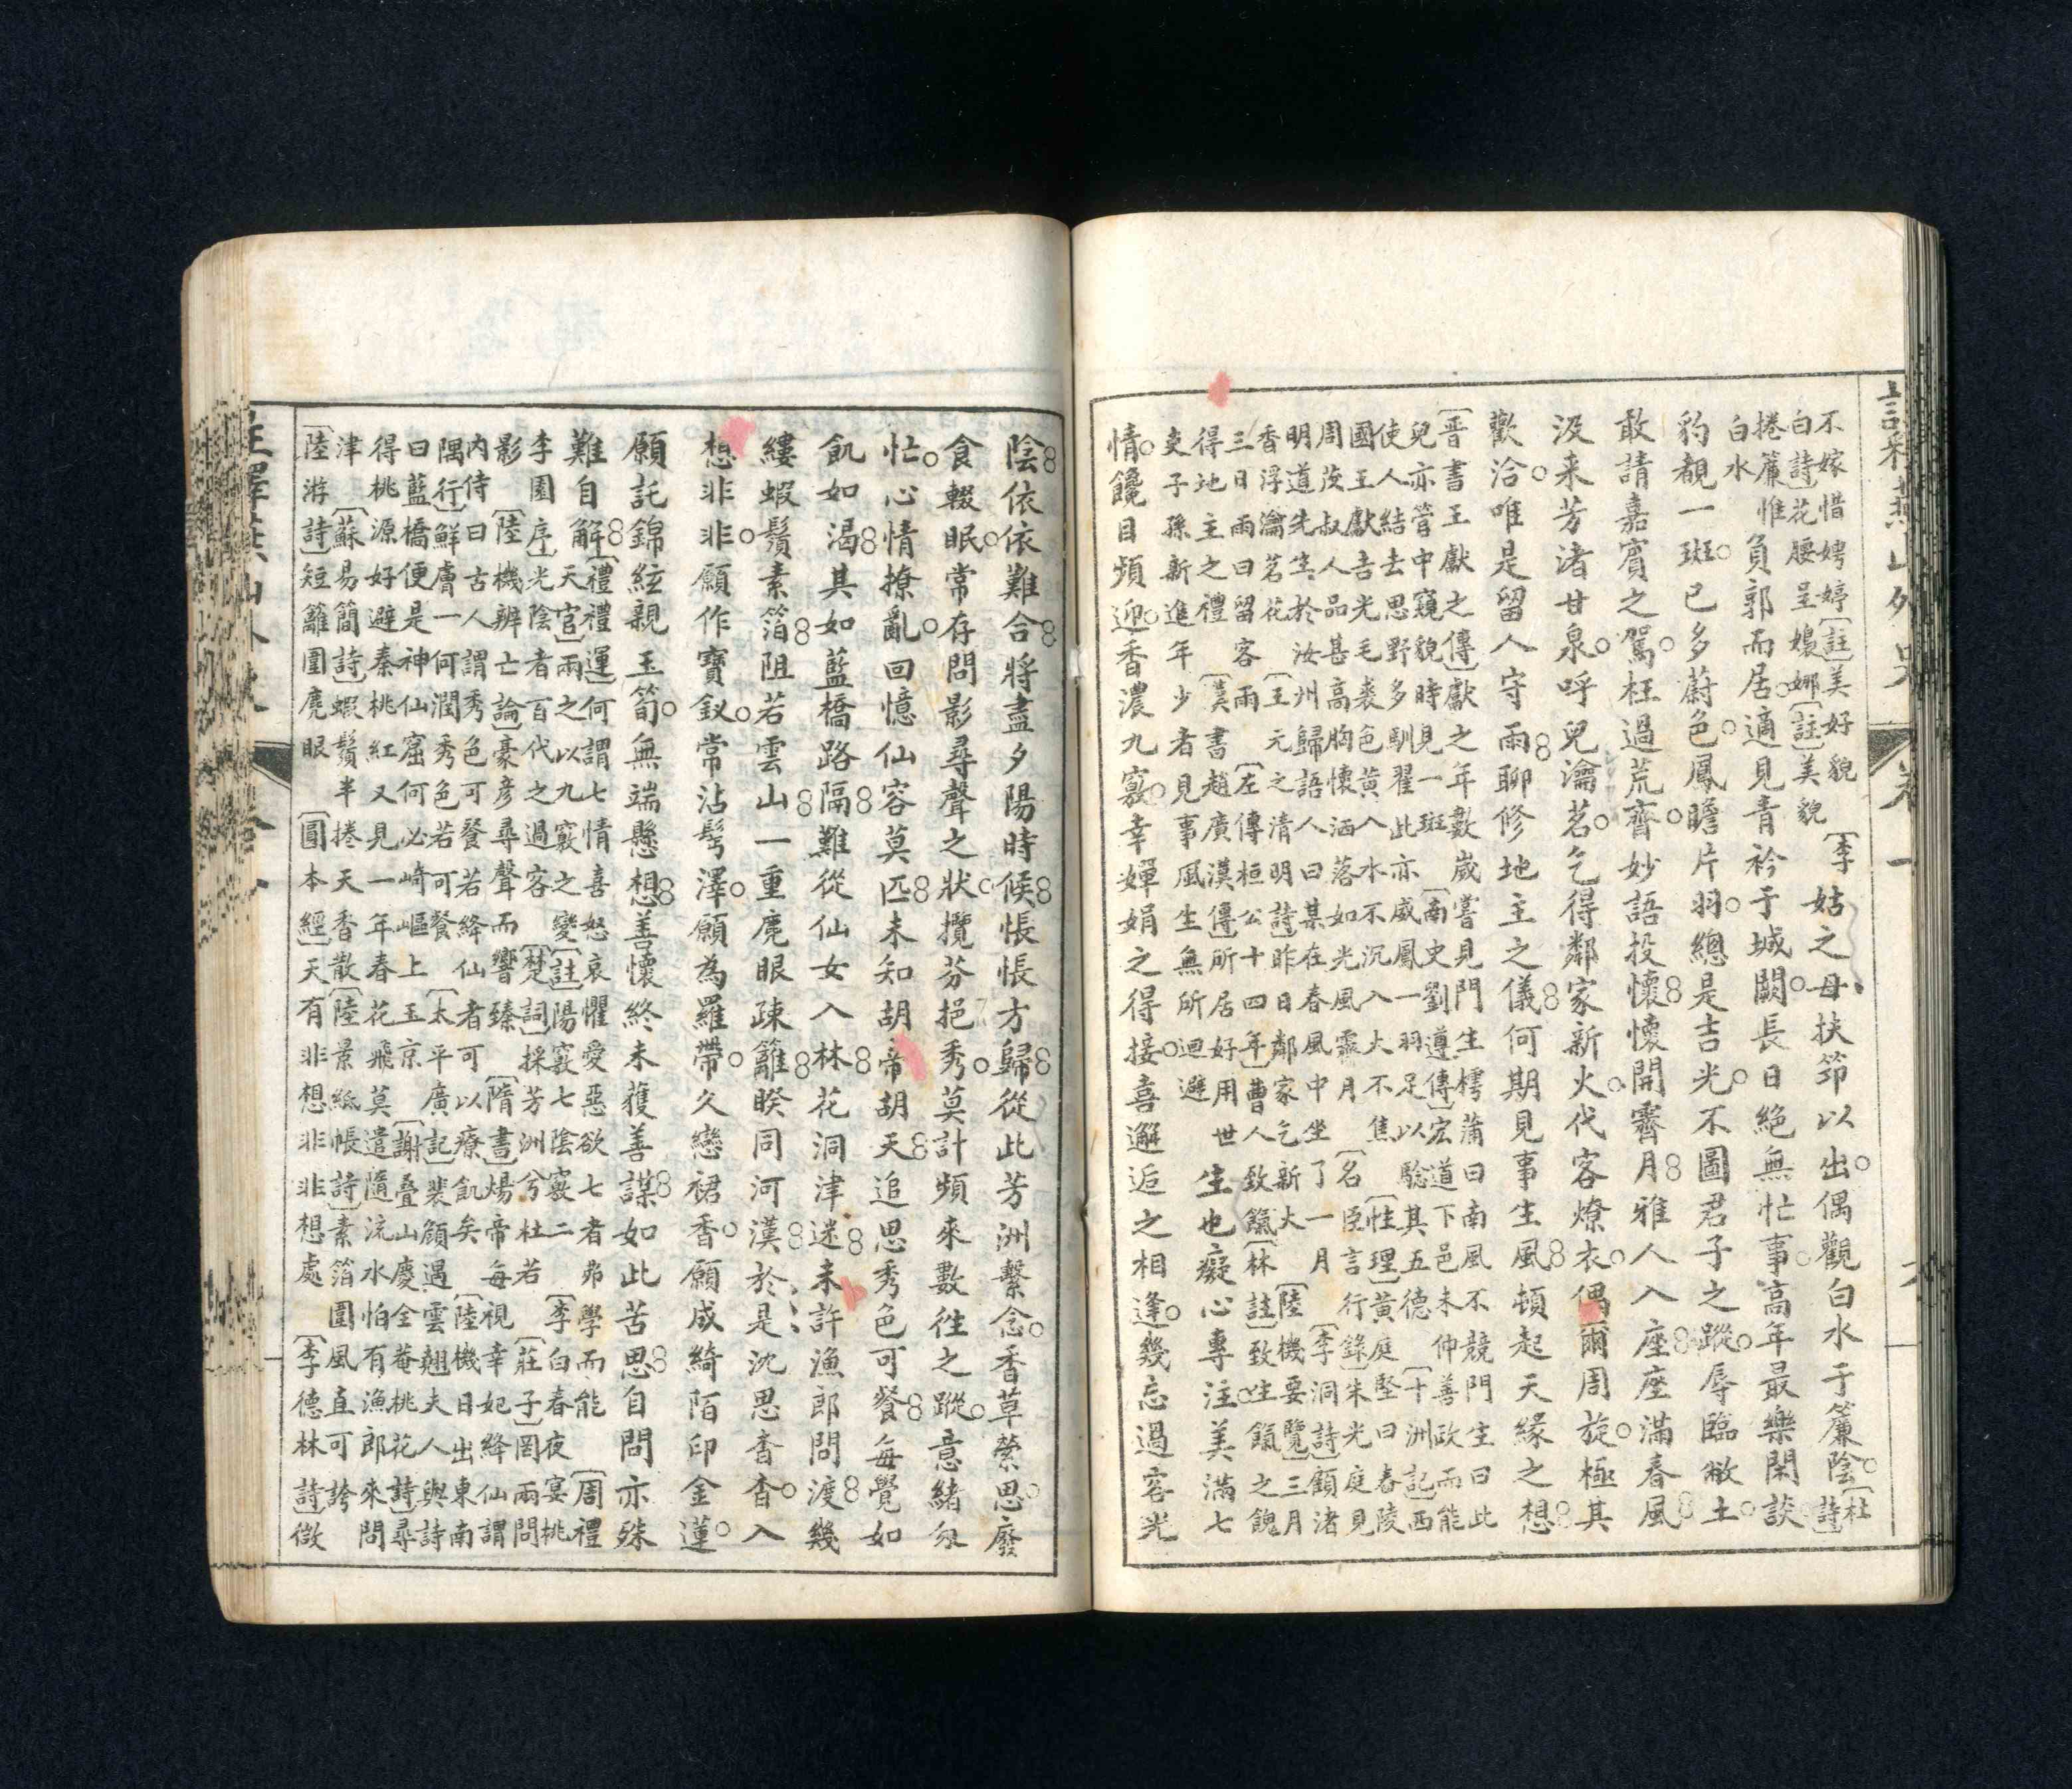 註釋燕山外史 卷一 六
不嫁惜娉婷〔註〕美好貌
白詩〕花腰呈嬝娜〔註〕美貌〔李
姑之母扶筇以出偶觀白水于簾陰〔杜
詩〕
捲簾惟
白水
負郭而居適見青衿于城闕長日絶無忙事高年最樂閑談
豹覩一斑已多蔚色鳳瞻片羽總是吉光不圖君子之蹤辱臨敝土
敢請嘉賓之駕枉過荒齋妙語投懷懷開霽月雅人入座座滿春風
汲来芳渚甘泉呼兒瀹茗乞得鄰家新火代客燎衣偶爾周旋極其
歡洽唯是留人守雨聊修地主之儀何期見事生風頓起天緣之想
〔晋書王獻之傳〕獻之年數嵗嘗見門生樗蒲曰南風不競門生曰此
兒亦管中窺豹時見一斑〔南史劉遵傳〕宏道下邑未伸善政而能
使人結去思野多馴翟此亦威鳳一羽足以驗其五德〔十洲記〕西
國王獻吉光毛裘色黄入水不沉入火不焦〔性理〕黄庭堅曰舂陵
周茂叔人品甚高胸懷洒落如光風霽月〔名臣言行錄〕朱光庭見
明道先生於汝州歸語人曰某在春風中坐了一月〔李洞詩〕顧渚
香浮瀹茗花〔王元之清明詩〕昨日鄰家乞新火〔陸機要覽〕三月
三日雨曰留客雨〔左傳桓公十四年〕曹人致餼〔林註〕致生餼之餽
得地主之禮〔漢書趙廣漢傳〕所居好用世
吏子孫新進年少者見事風生無所迴避
生也癡心專注美滿七
情饞目頻迎香濃九竅幸嬋娟之得接喜邂逅之相逢幾忘過客光
陰依依難合將盡夕陽時候悵悵方歸從此芳洲繫念香草縈思廢
食輟眠常存問影尋聲之狀攬芬挹秀莫計頻來數徃之蹤意緒匆
忙心情撩亂回憶仙容莫匹未知胡帝胡天追思秀色可餐每覺如
飢如渴其如藍橋路隔難從仙女入林花洞津迷未許漁郎問渡幾
縷蝦鬚素箔阻若雲山一重麂眼疎籬睽同河漢於是沈思杳杳入
想非非願作寶釵常沾髩澤願為羅帶久戀裙香願成綺陌印金蓮
願託錦絃親玉筍無端懸想善懷終未獲善謀如此苦思自問亦殊
難自解
〔禮禮運〕何謂七情喜怒哀懼愛惡欲七者弗學而能〔周禮
天官〕兩之以九竅之變〔註〕陽竅七陰竅二〔李白春夜宴桃
李園序〕光陰者百代之過客〔楚詞〕採芳洲兮杜若〔莊子〕罔兩問
影〔陸機辨亡論〕豪彦尋聲而響臻〔隋書〕煬帝每視幸妃絳仙謂
内侍曰古人謂秀色可餐若絳仙者可以療飢矣〔陸機日出東南
隅行〕鮮膚一何潤秀色若可餐〔太平廣記〕裴顧遇雲翹夫人與詩
曰藍橋便是神仙窟何必崎嶇上玉京〔謝叠山慶全菴桃花詩〕尋
得桃源好避秦桃紅又見一年春花飛莫遣隨流水怕有漁郎來問
津〔蘇易簡詩〕蝦鬚半捲天香散〔陸景紙帳詩〕素箔圍風直可誇
〔陸游詩〕短籬圍麂眼〔圓本經〕天有非想非非想處〔李德林詩〕微